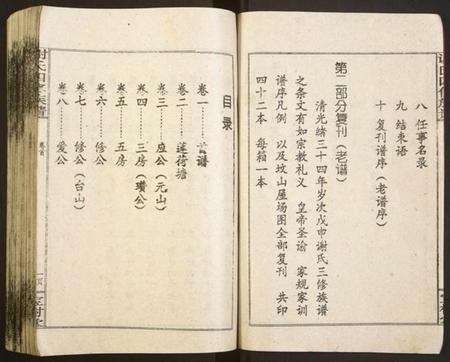 八 任事名录
九 结束语
十 复刊谱序（老谱序）
第二部分复刊（老谱）
清光緒三十四年岁次戊申谢氏三修族谱
之条文有如宗教礼义 皇帝圣谕 家规家训
谱序凡例 以及坟山屋场图全部复刊 共印
四十二本 每箱一本
目录
卷一 首谱
卷二 莲荷塘
卷三 应公（元山）
卷四 三房（瓒公）
卷五 五房
卷六 修公
卷七 修公（台山）
卷八 爱公
谢氏四修族谱
卷首